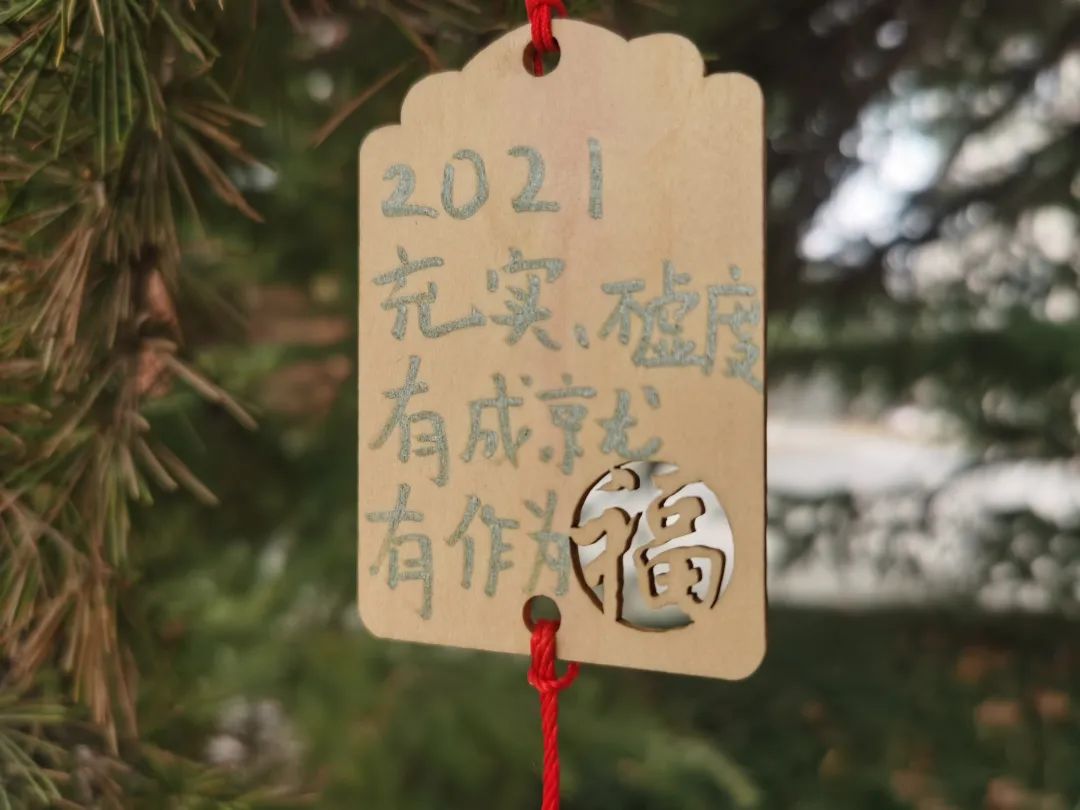 2021
充实、不虚度
有成就
有作为
福